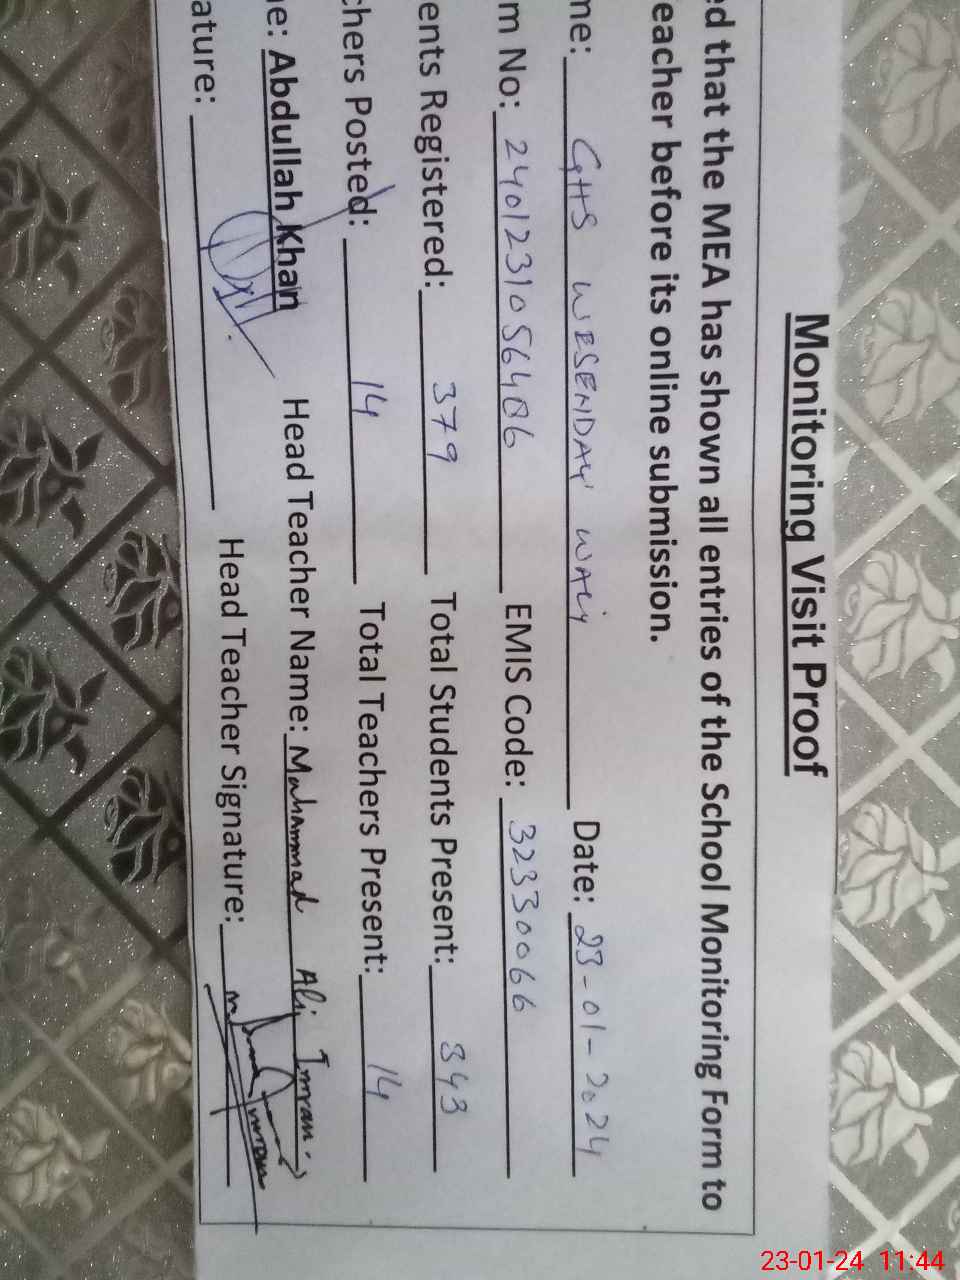 Monitoring Visit Proof
ed that the MEA has shown all entries of the School Monitoring Form to
eacher before its online submission.
me: GHS WESENDAY WALY Date: 23-01-2024
m No: 2401231056486 EMIS Code: 32330066
ents Registered: 379 Total Students Present: 343
chers Posted: 14 Total Teachers Present: 14
e: Abdullah Khan Head Teacher Name: Muhammad Ali Imran
ature: Head Teacher Signature:
23-01-24 11:44